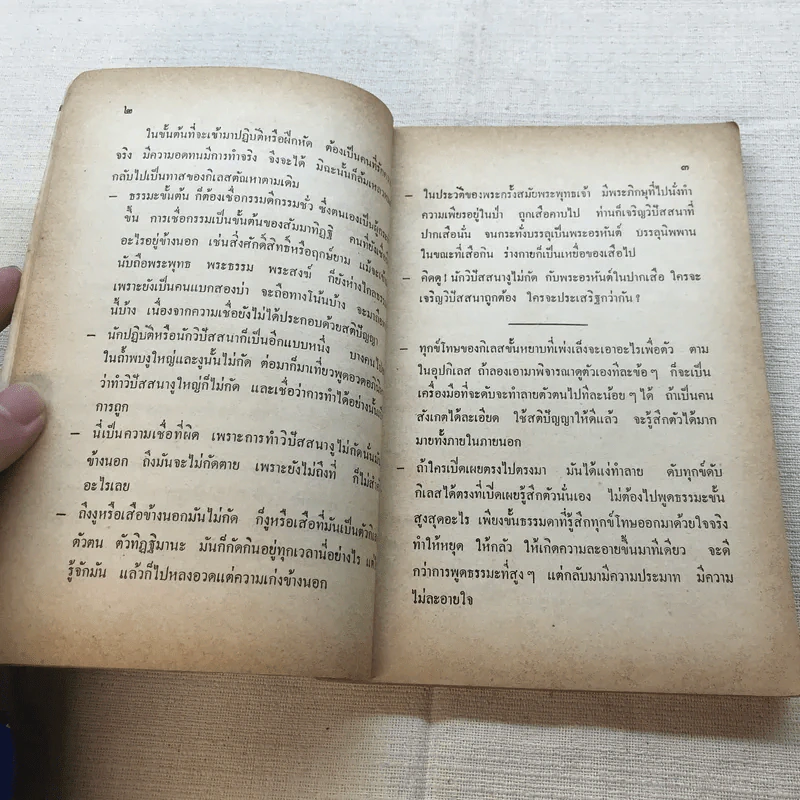 ๒
ในขั้นต้นที่จะเข้ามาปฏิบัติหรือฝึกหัด ต้องเป็นคนที่
จริง มีความอดทนมีการทำจริง จึงจะได้ มิฉะนั้นก็ล้มเหลว
กลับไปเป็นทาสของกิเลสตัณหาตามเดิม
– ธรรมะขั้นต้น ก็ต้องเชื่อกรรมดีกรรมชั่ว ซึ่งตนเองเป็นผู้
ขึ้น การเชื่อกรรมเป็นขั้นต้นของสัมมาทิฏฐิ คนที่ยัง
อะไรอยู่ข้างนอก เช่นสิ่งศักดิ์สิทธิ์หรือฤกษ์ยาม แม้จะ
นับถือพระพุทธ พระธรรม พระสงฆ์ ก็ยังห่างไกล
เพราะยังเป็นคนแบกสองบ่า จะถือทางโน้นบ้าง จะมาถือ
นี้บ้าง เนื่องจากความเชื่อยังไม่ได้ประกอบด้วยสติปัญญา
– นักปฏิบัติหรือนักวิปัสสนาก็เป็นอีกแบบหนึ่ง บางคนไป
ในถ้ำพบงูใหญ่และงูนั้นไม่กัด ต่อมาก็มาเที่ยวพูดอวดอภิ
ว่าทำวิปัสสนางูใหญ่ก็ไม่กัด และเชื่อว่าการทำได้อย่างนั้น
การถูก
– นี่เป็นความเชื่อที่ผิด เพราะการทำวิปัสสนางูไม่กัดนั้น
ข้างนอก ถึงมันจะไม่กัดตาย เพราะยังไม่ถึงที่ ก็ไม่
อะไรเลย
– ถึงงูหรือเสือข้างนอกมันไม่กัด ก็งูหรือเสือที่มันเป็นตัว
ตัวตน ตัวทิฏฐิมานะ มันก็กัดกินอยู่ทุกเวลานี่อย่างไร แต่
รู้จักมัน แล้วก็ไปหลงอวดแต่ความเก่งข้างนอก
๓
– ในประวัติของพระครั้งสมัยพระพุทธเจ้า มีพระภิกษุที่ไปนั่งทำ
ความเพียรอยู่ในป่า ถูกเสือคาบไป ท่านก็เจริญวิปัสสนาที่
ปากเสือนั่น จนกระทั่งบรรลุเป็นพระอรหันต์ บรรลุนิพพาน
ในขณะที่เสือกิน ร่างกายก็เป็นเหยื่อของเสือไป
– คิดดู! นักวิปัสสนางูไม่กัด กับพระอรหันต์ในปากเสือ ใครจะ
เจริญวิปัสสนาถูกต้อง ใครจะประเสริฐกว่ากัน ?
– ทุกข์โทษของกิเลสขั้นหยาบที่เพ่งเล็งจะเอาอะไรเพื่อตัว ตาม
ในอุปกิเลส ถ้าลองเอามาพิจารณาดูตัวเองทีละข้อ ๆ ก็จะเป็น
เครื่องมือที่จะดับจะทำลายตัวตนไปทีละน้อย ๆ ได้ ถ้าเป็นคน
สังเกตได้ละเอียด ใช้สติปัญญาให้ดีแล้ว จะรู้สึกตัวได้มาก
มายทั้งภายในภายนอก
– ถ้าใครเปิดเผยตรงไปตรงมา มันได้แง่ทำลาย ดับทุกข์ดับ
กิเลสได้ตรงที่เปิดเผยรู้สึกตัวนั่นเอง ไม่ต้องไปพูดธรรมะขั้น
สูงสุดอะไร เพียงขั้นธรรมดาที่รู้สึกทุกข์โทษออกมาด้วยใจจริง
ทำให้หยุด ให้กลัว ให้เกิดความละอายขึ้นมาทีเดียว จะดี
กว่าการพูดธรรมะที่สูง ๆ แต่กลับมามีความประมาท มีความ
ไม่ละอายใจ